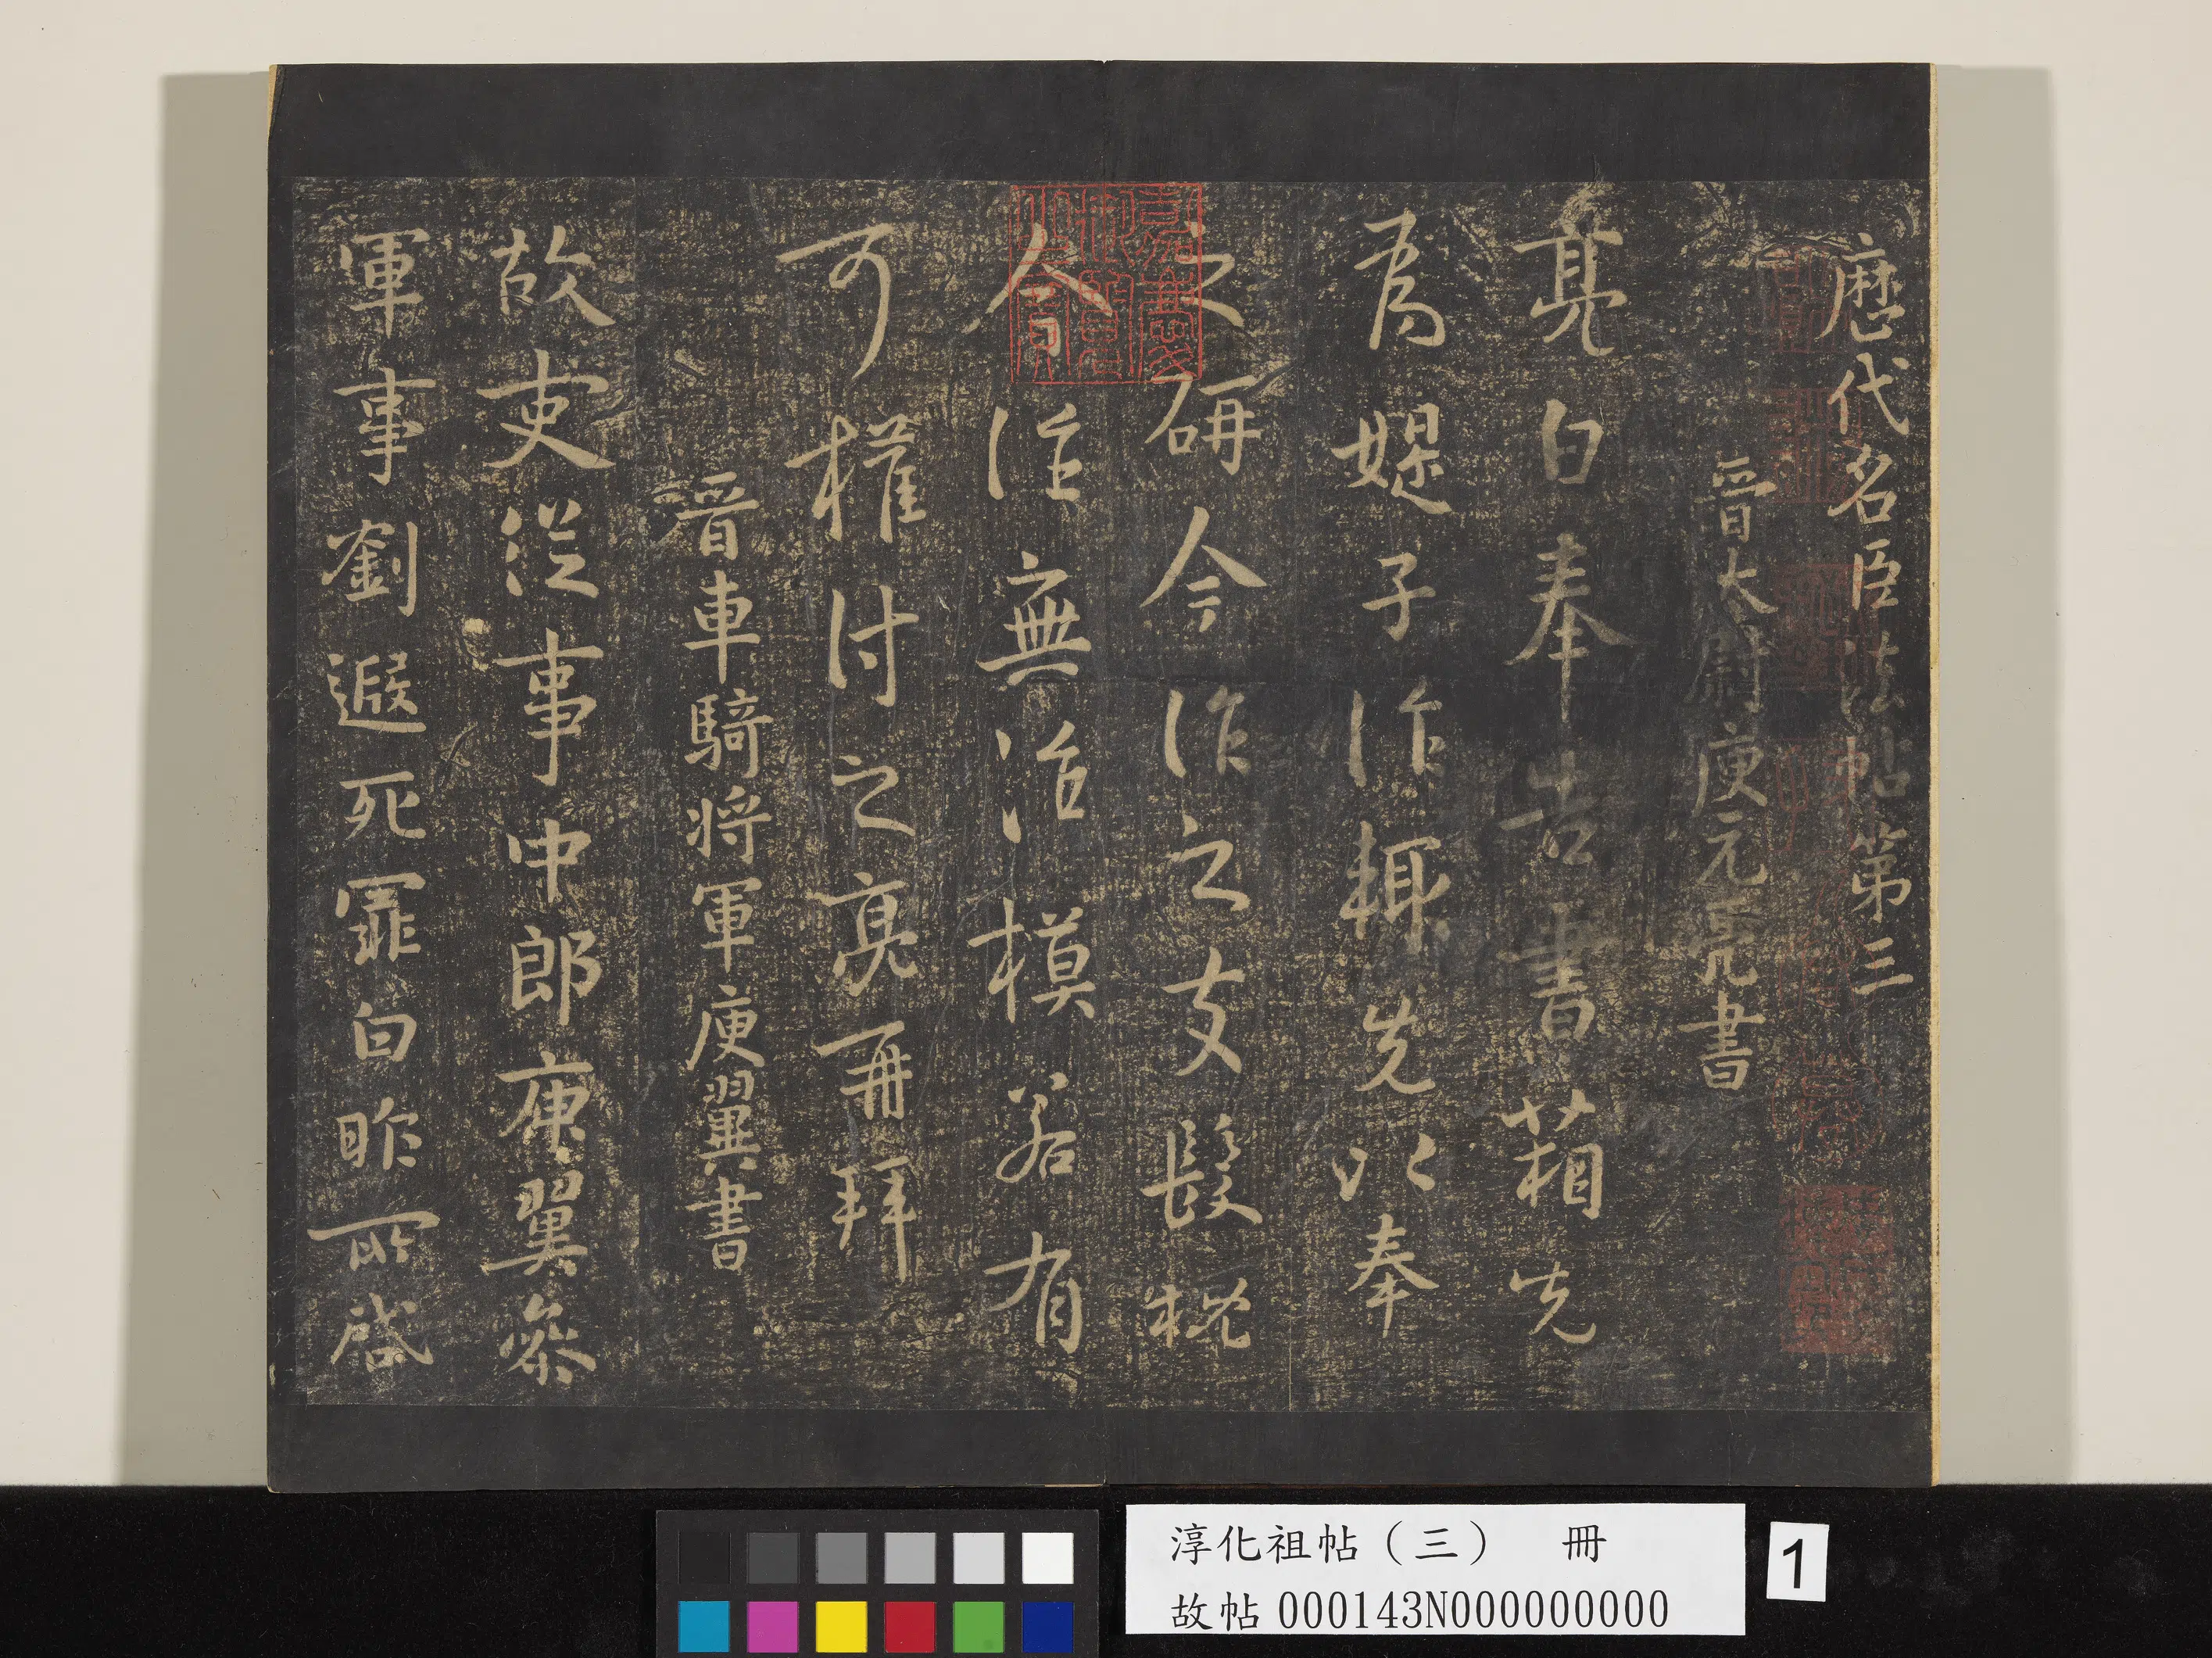 歷代名臣法帖第三
晉大尉庾元亮書
亮白奉告書箱先
為媞子作輙先以奉
之研今作之支髮枕
今往無冶模若有
可權付之亮再拜
晉車騎將軍庾翼書
故吏從事中郎庾翼參
軍事劉遐死罪白昨所啓
嘉慶御覽之寶
淳化祖帖（三） 冊
故帖000143N000000000
1